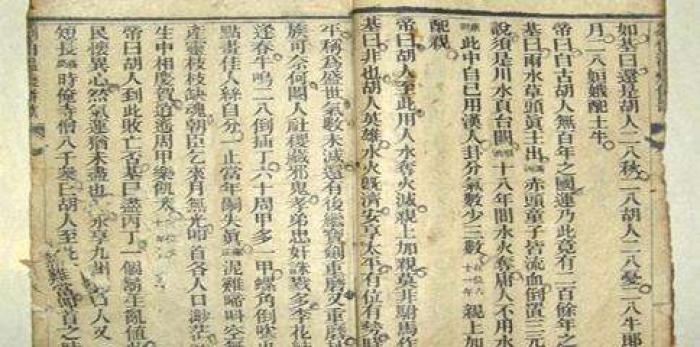 如基曰還是胡人二八秋二八胡人二八憂二八牛郎
月二八姮娥配土牛
帝曰自古胡人無百年之國運乃此竟有二百餘年之
基曰雨水草頭真主出赤頭童子皆流血倒置三元
說須是川水頁台闕十八年間水火奪庸人不用水
此中自己用漢人卦分氣數少三數親上加
配親
帝曰胡人至此用人水奪火滅親上加親莫非駙馬作
基曰非也胡人英雄水火既濟安享太平有位有勢時
平稱爲盛世氣數未滅還有後繼寶劍重磨又重磨
族可奈何閹人社稷藏邪鬼孝弟忠奸誅戮多李花
逢春牛鳴二八倒插丁六十周甲多一甲螺角倒吹
點畫佳人絲自分一止當年嗣失眞泥雞啼叫空無
產靈枝枝缺魂朝臣乞來月無光叩首各人口渺茫
生中相慶賀逍遙周甲樂飢
帝曰胡人到此敗亡否基曰盡丙丁一個
民懷異心然氣運猶未盡也永享九州日人又
短長時俺寺僧八千眾曰胡人至此雞當